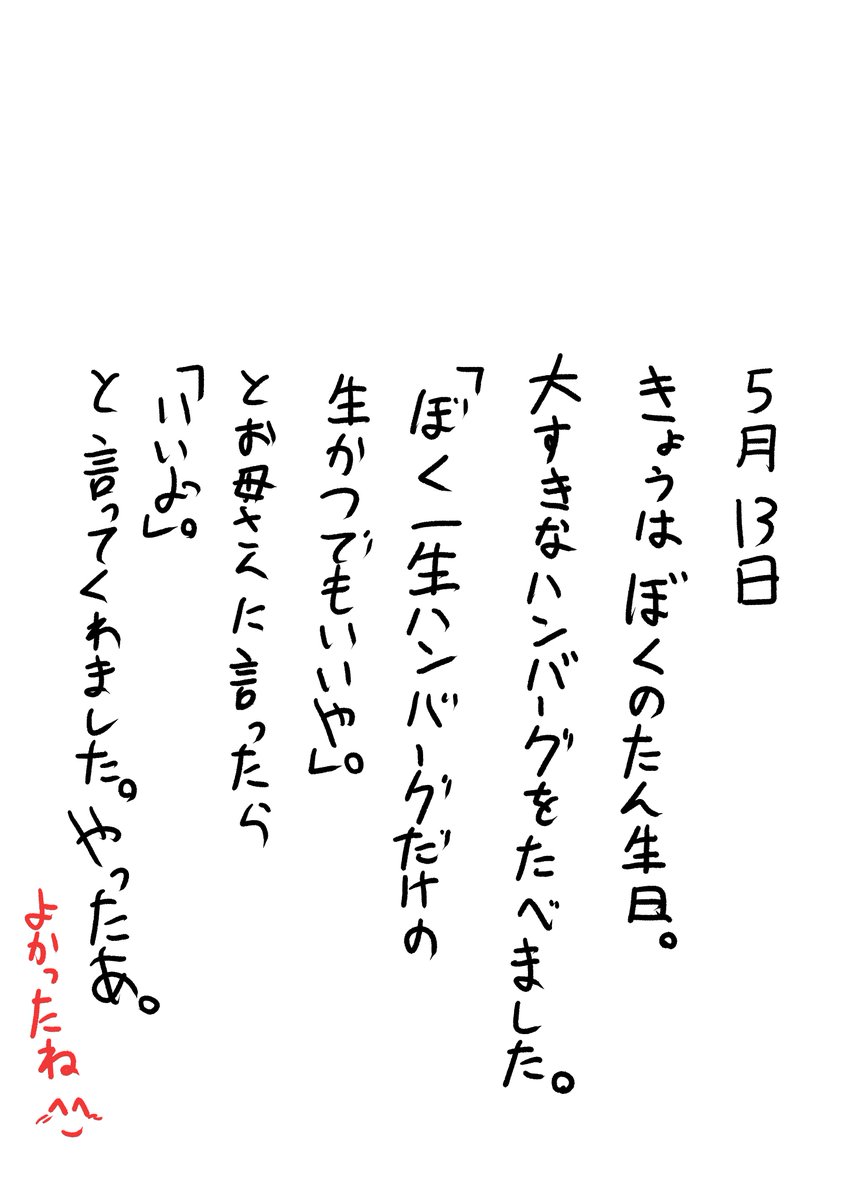 5月13日
きょうはぼくのたん生日。
大すきなハンバーグをたべました。
「ぼく一生ハンバーグだけの
生かつでもいいや」。
とお母さんに言ったら
「いいよ」。
と言ってくれました。やったあ。
よかったね^^